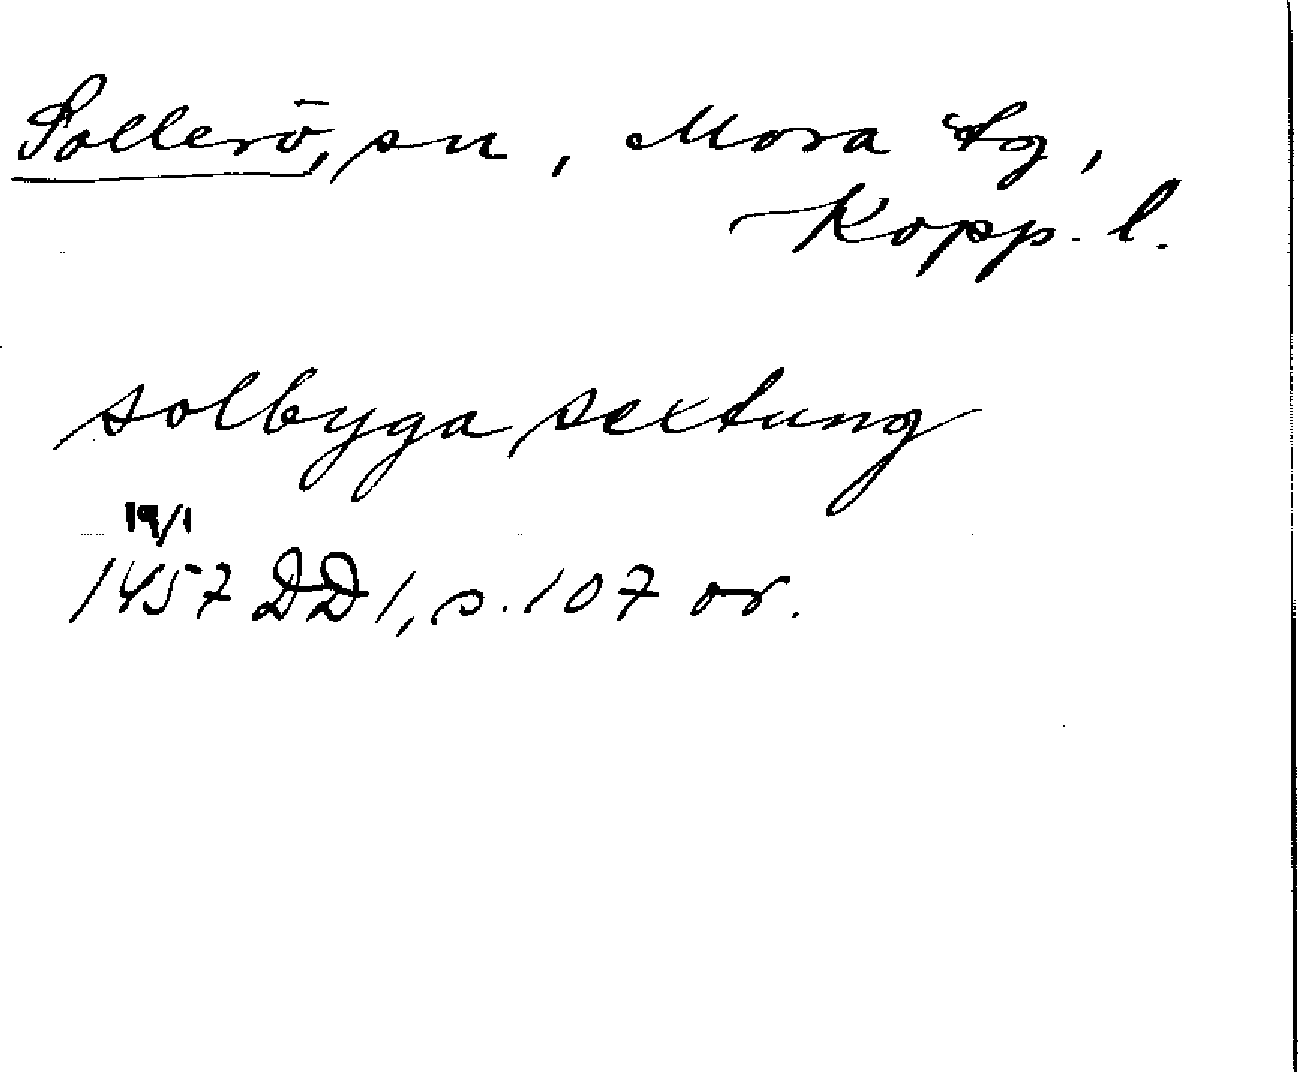 Sollerö, sn, Mora tg,
Kopp. l.
solbyga sextung
19/1
1457 DD 1, s. 107 or.